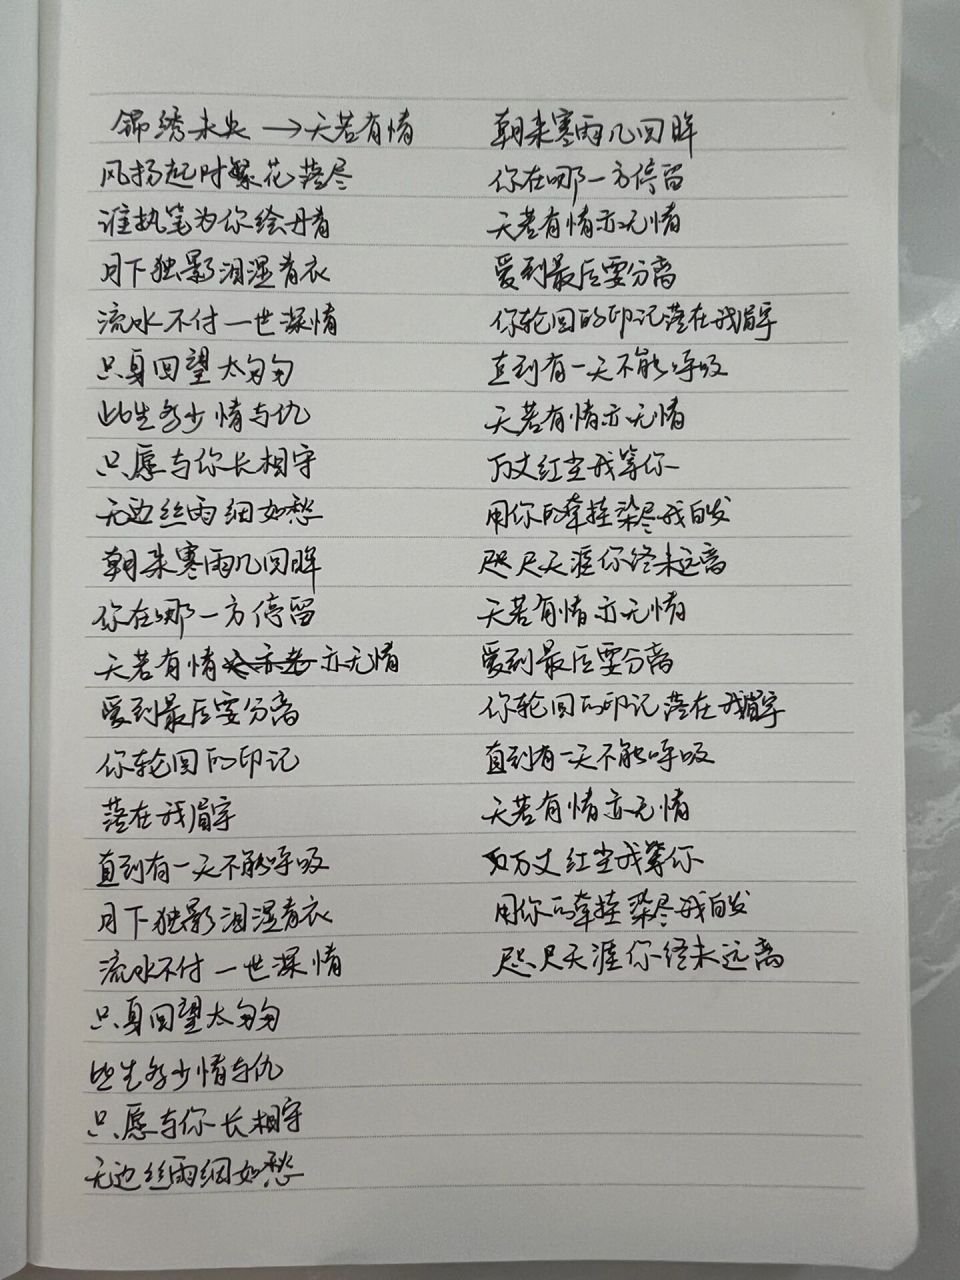 锦绣未央→天若有情
风扬起时繁花落尽
谁执笔为你绘丹青
月下独影泪湿青衣
流水不付一世深情
只身回望太匆匆
此生多少情与仇
只愿与你长相守
无边丝雨细如愁
朝来寒雨几回眸
你在哪一方停留
天若有情亦无情
爱到最后要分离
你轮回的印记
落在我眉宇
直到有一天不能呼吸
月下独影泪湿青衣
流水不付一世深情
只身回望太匆匆
此生多少情与仇
只愿与你长相守
无边丝雨细如愁
朝来寒雨几回眸
你在哪一方停留
天若有情亦无情
爱到最后要分离
你轮回的印记落在我眉宇
直到有一天不能呼吸
天若有情亦无情
万丈红尘我等你
用你的牵挂染尽我白发
咫尺天涯你终未远离
天若有情亦无情
爱到最后要分离
你轮回的印记落在我眉宇
直到有一天不能呼吸
天若有情亦无情
万丈红尘我等你
用你的牵挂染尽我白发
咫尺天涯你终未远离